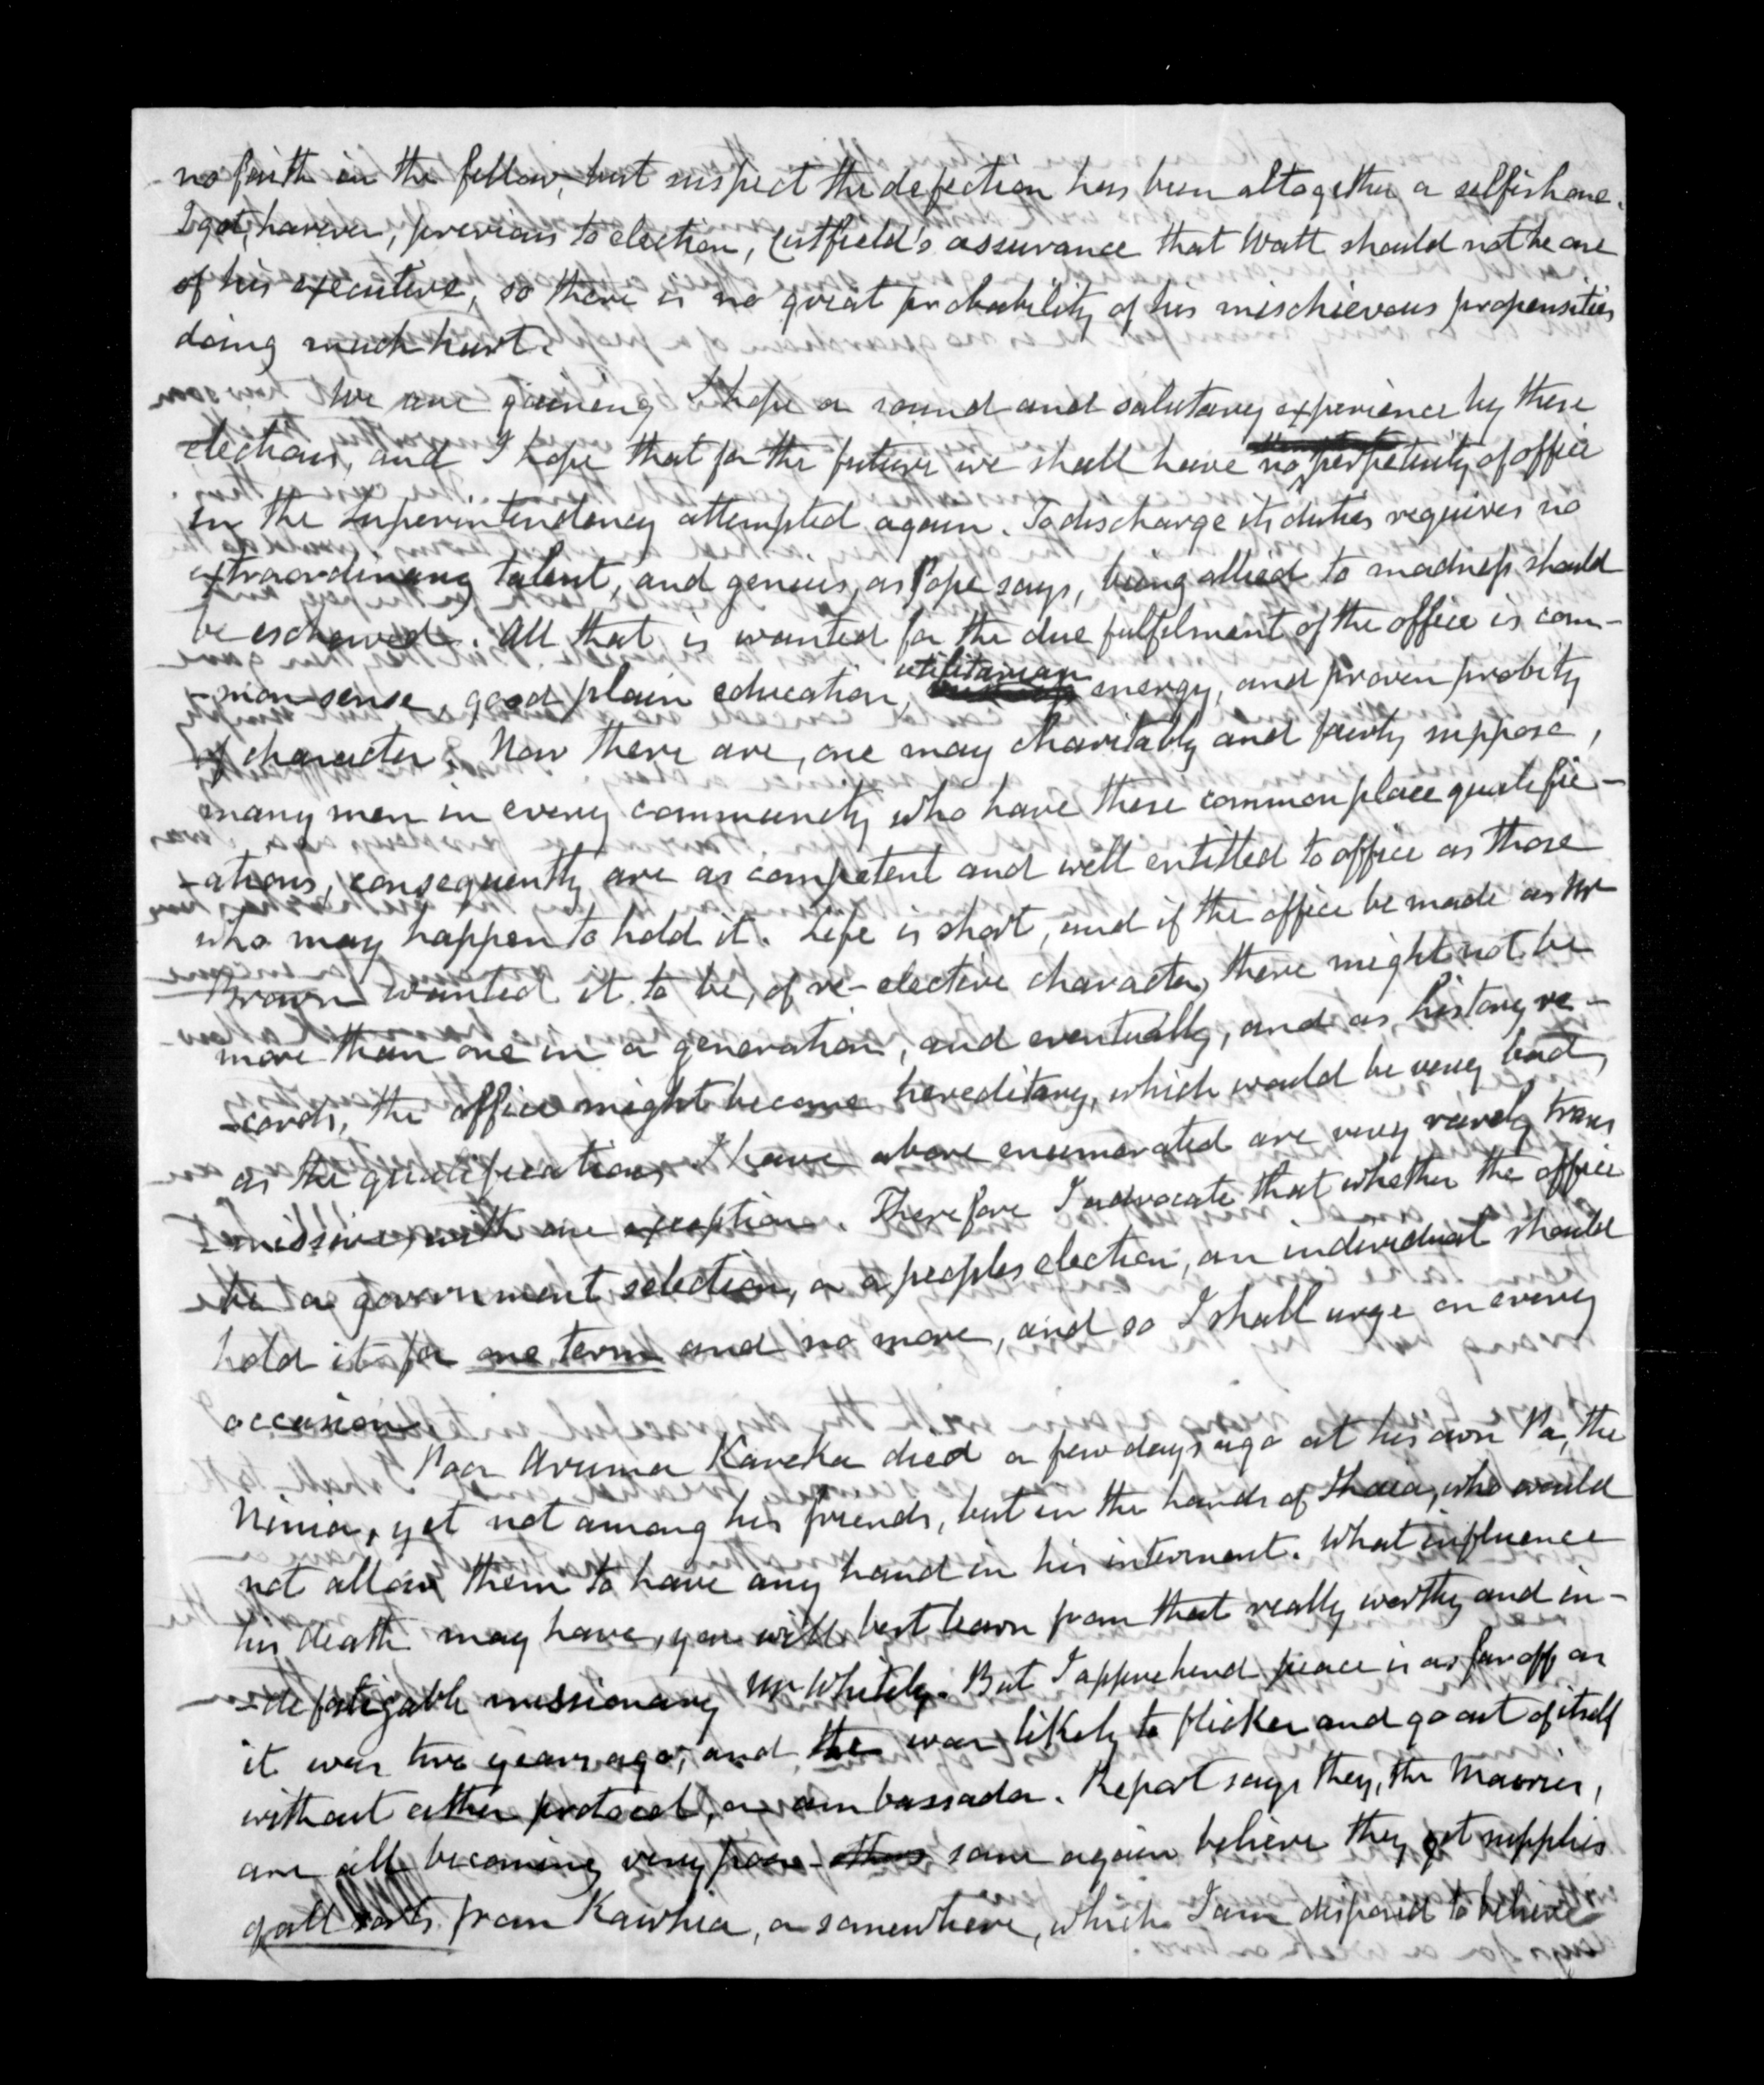 no faith in the fellow, but suspect the defection has been altogether a selfish one.
I got, however, previous to election, Cutfield's assurance that Watt should not be one
of his executive, so there is no great probability of his mischievous propensities
doing much hurt.
We are gaining I hope a sound and salutary experience by these
elections, and I hope that for the future we shall have no perpetuity of office
in the Superintendency attempted again. To discharge its duties requires no
extraordinary talent, and genius, as Pope says, being allied to madness should
be eschewed. All that is wanted for the due fulfilment of the office is com-
-mon sense, good plain education, utilitarian energy, and proven probity
of character. Now there are, one may charitably and fairly suppose,
many men in every community who have these common place qualific-
-ations, consequently are as competent and well entitled to office as those
who may happen to hold it. Life is short, and if the office be made as Mr
Brown wanted it to be, of re-elective character, there might not be
more than one in a generation, and eventually, and as history re-
-cords, the office might become hereditary, which would be very bad,
as the qualifications I have above enumerated are very rarely trans
-missive, with one exception. Therefore I advocate that whether the office
be a government selection, or a peoples election, an individual should
hold it for one term and no more, and so I shall urge on every
occasion.
Poor Aruma Karaka died a few days ago at his own Pa, the
Ninia, yet not among his friends, but in the hands of Ihaia, who would
not allow them to have any hand in his interment. What influence
his death may have, you will best learn from that really worthy and in-
-defatigable missionary Mr Whitely. But I apprehend peace is as far off as
it was two years ago, and the war likely to flicker and go out of itself
without either protocol, or ambassador. Report says they, the Maories,
are all becoming very poor - some again believe they get supplies
of all sorts from Kawhia, or somewhere, which I am disposed to believe